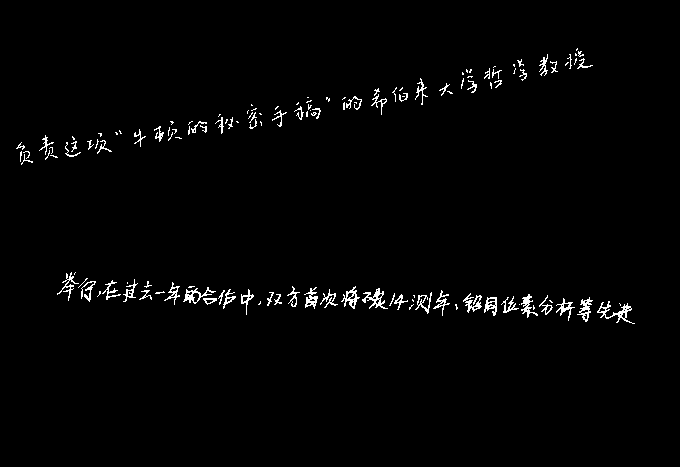 负责这项“牛顿的秘密手稿”的希伯来大学哲学教授
举行,在过去一年的合作中,双方首次将碳14测年、铅同位素分析等先进